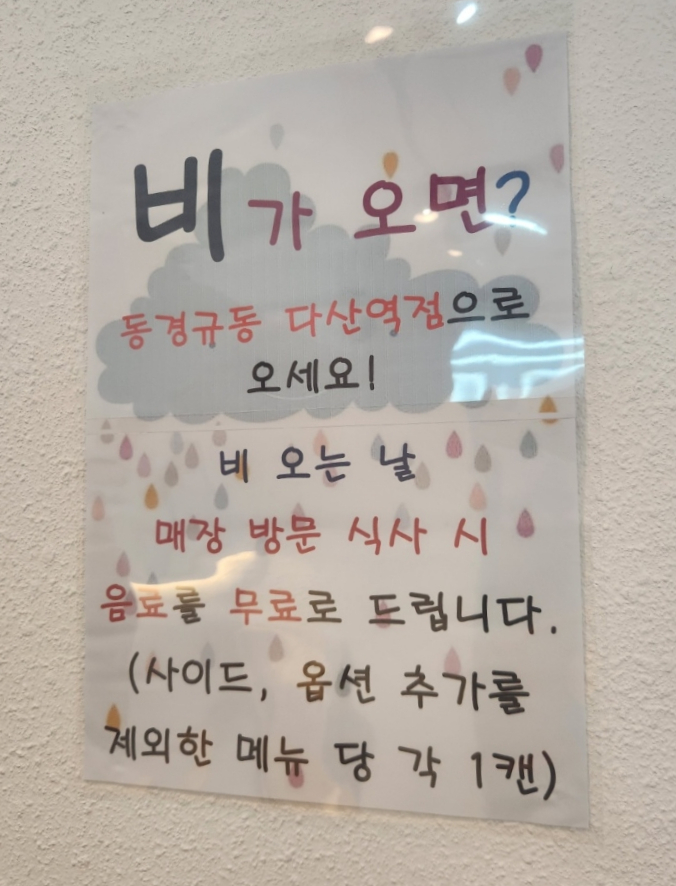 비가 오면?
동경규동 다산역점으로
오세요!
비 오는 날
매장 방문 식사 시
음료를 무료로 드립니다.
(사이드, 옵션 추가를
제외한 메뉴 당 각 1캔)